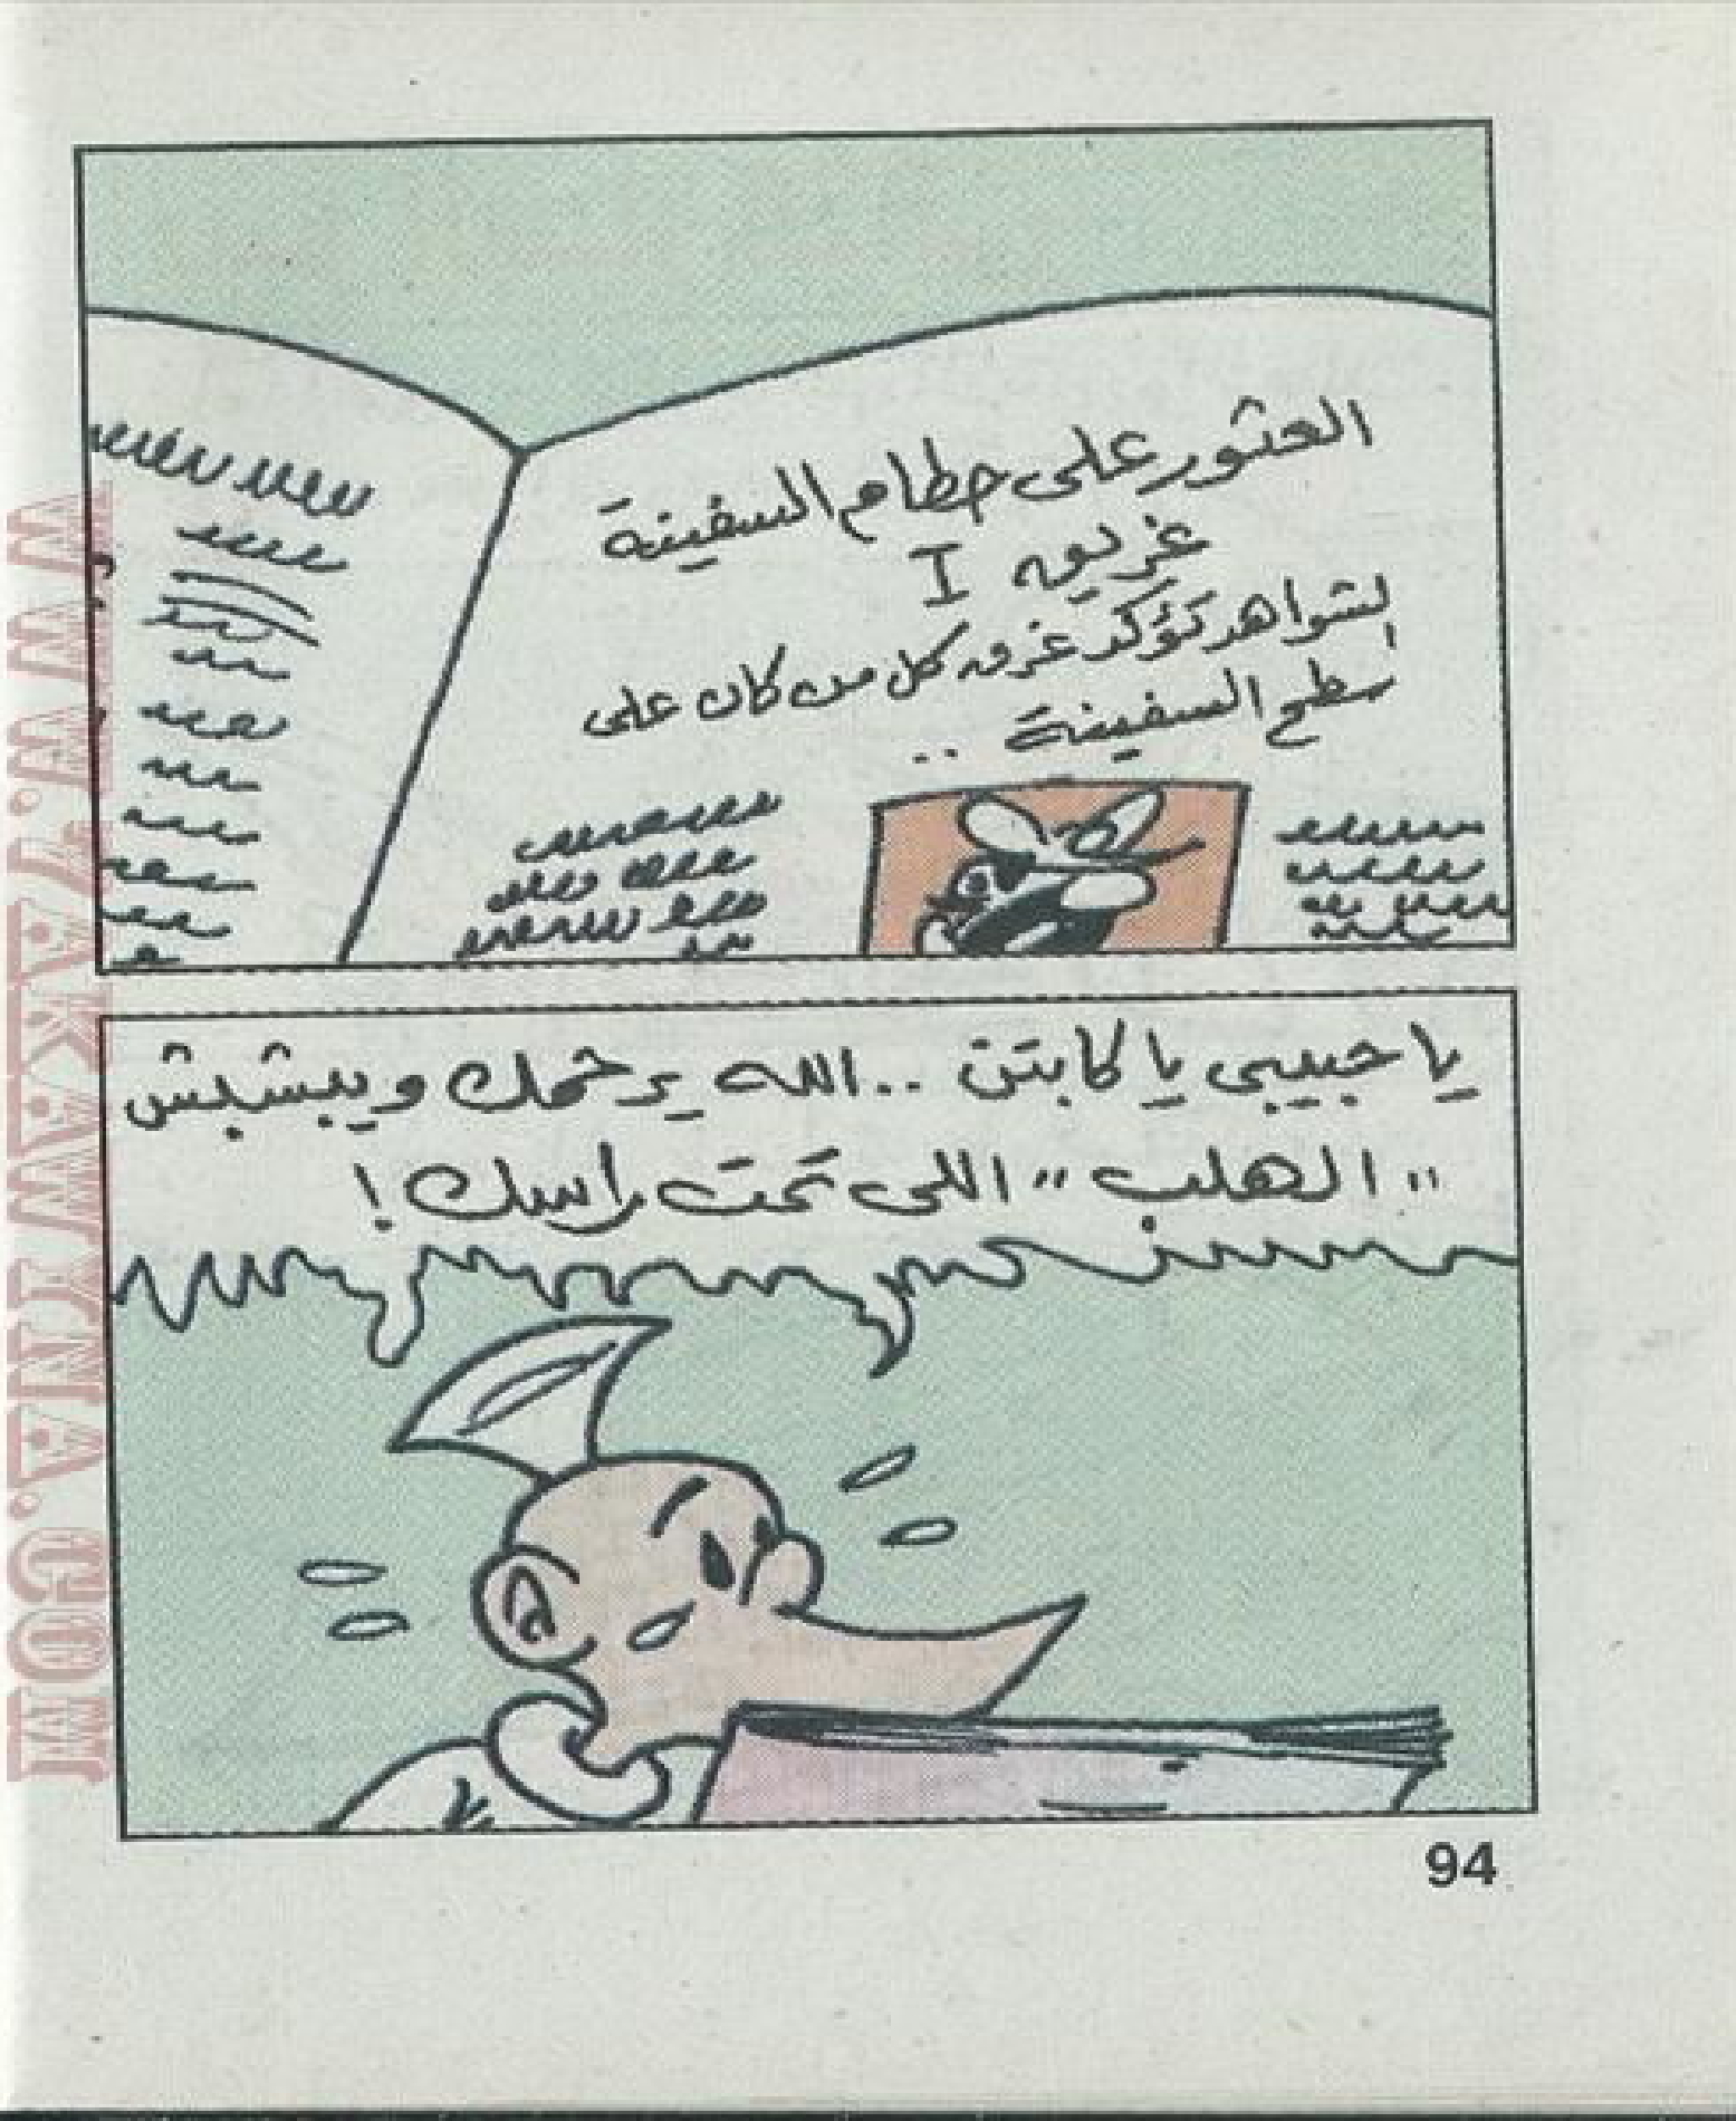 العثور على حطام السفينة
غريق I
الشواهد تؤكد غرق كل من كان على
سطح السفينة ..
يا حبيبى يا كابتن .. الله يرحمك ويبشبش
"الهلب" اللى تحت راسك!
94
WWW.T7AKEWINA.COM